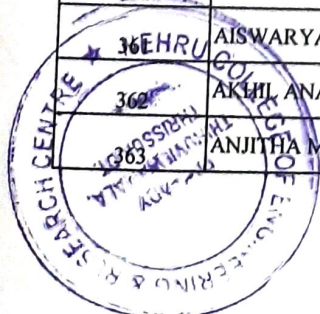 361 AISWARYA
362 AKHIL ANA
363 ANJITHA M
NEHRU COLLEGE OF ENGINEERING & RESEARCH CENTRE ★
THRISSUR